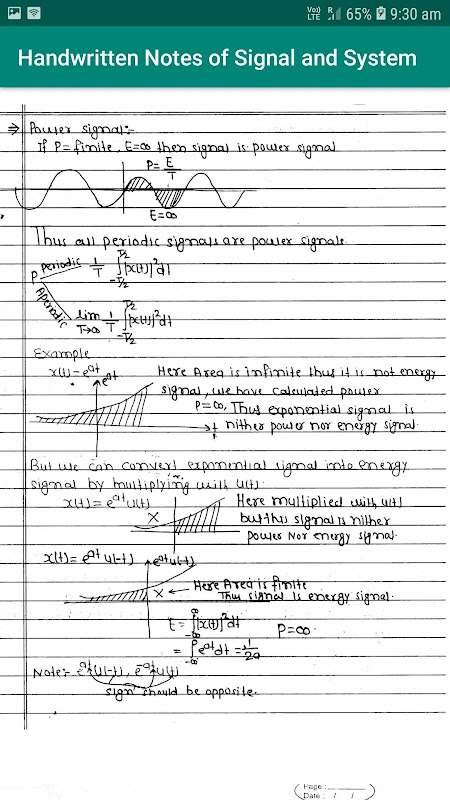 Voo) LTE R 65% 9:30 am
Handwritten Notes of Signal and System
⇒ Power signal:-
If P=finite, E=∞ then signal is power signal
P=E/T
E=∞
Thus all periodic signals are power signals.
P Periodic 1/T ∫_{-T/2}^{T/2} |x(t)|²dt
Aperiodic lim_{T→∞} 1/T ∫_{-T/2}^{T/2} |x(t)|²dt
Example
x(t)=e^{at} e^{at}
Here Area is infinite thus it is not energy
signal, we have calculated power
P=∞, Thus exponential signal is
t nither power nor energy signal.
But we can convert exponential signal into energy
signal by multiplying with u(t).
x(t)=e^{at}u(t)
X
Here multiplied with u(t)
but this signal is nither
power Nor energy signal.
x(t)=e^{at}u(-t) e^{at}u(-t)
X ← Here Area is finite
Thus signal is energy signal.
E=∫_{-∞}^{∞}|x(t)|²dt P=∞
=∫_{-∞}^{0} e^{at}dt = 1/2a
Note:- e^{at}u(-t), e^{-at}u(t)
sign should be opposite.
Page:
Date: / /